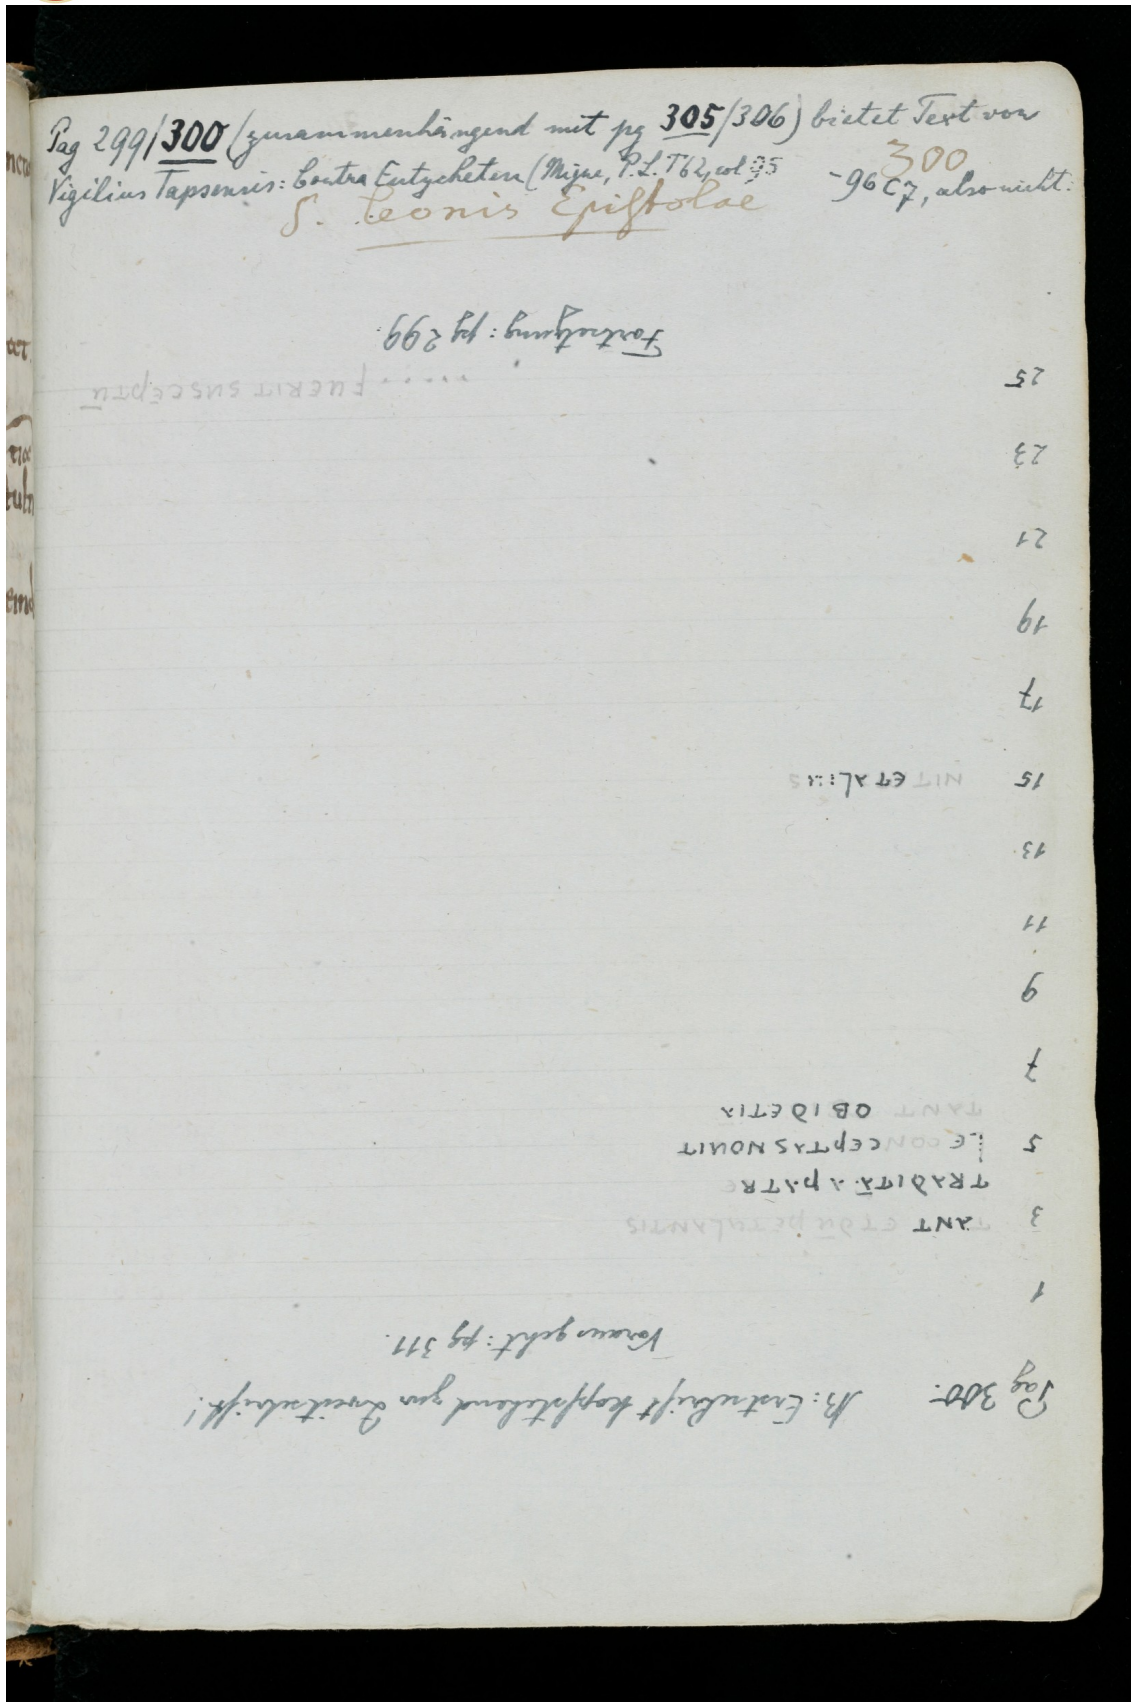 Pag 299/300 (zusammenhängend mit pg 305/306) bietet Text von
300
Vigilius Tapsensis: Contra Eutycheten (Migne, P.L. T 62, col 95 -96 C7, also nicht:
S. Leonis Epistolae
Pag 300. NB: Erstschrift kopfstehend zur Zweitschrift!
Voraus geht: pg 311.
1
3 TANT ET DŪ PETULANTIS
TRADITĀ A PATRE
5 E CONCEPTAS NOUIT
TANT OBIDETIA
7
9
11
13
15 NIT ET ALIUS
17
19
21
23
25 ..... FUERIT SUSCEPTŪ
Fortsetzung: pg 299.